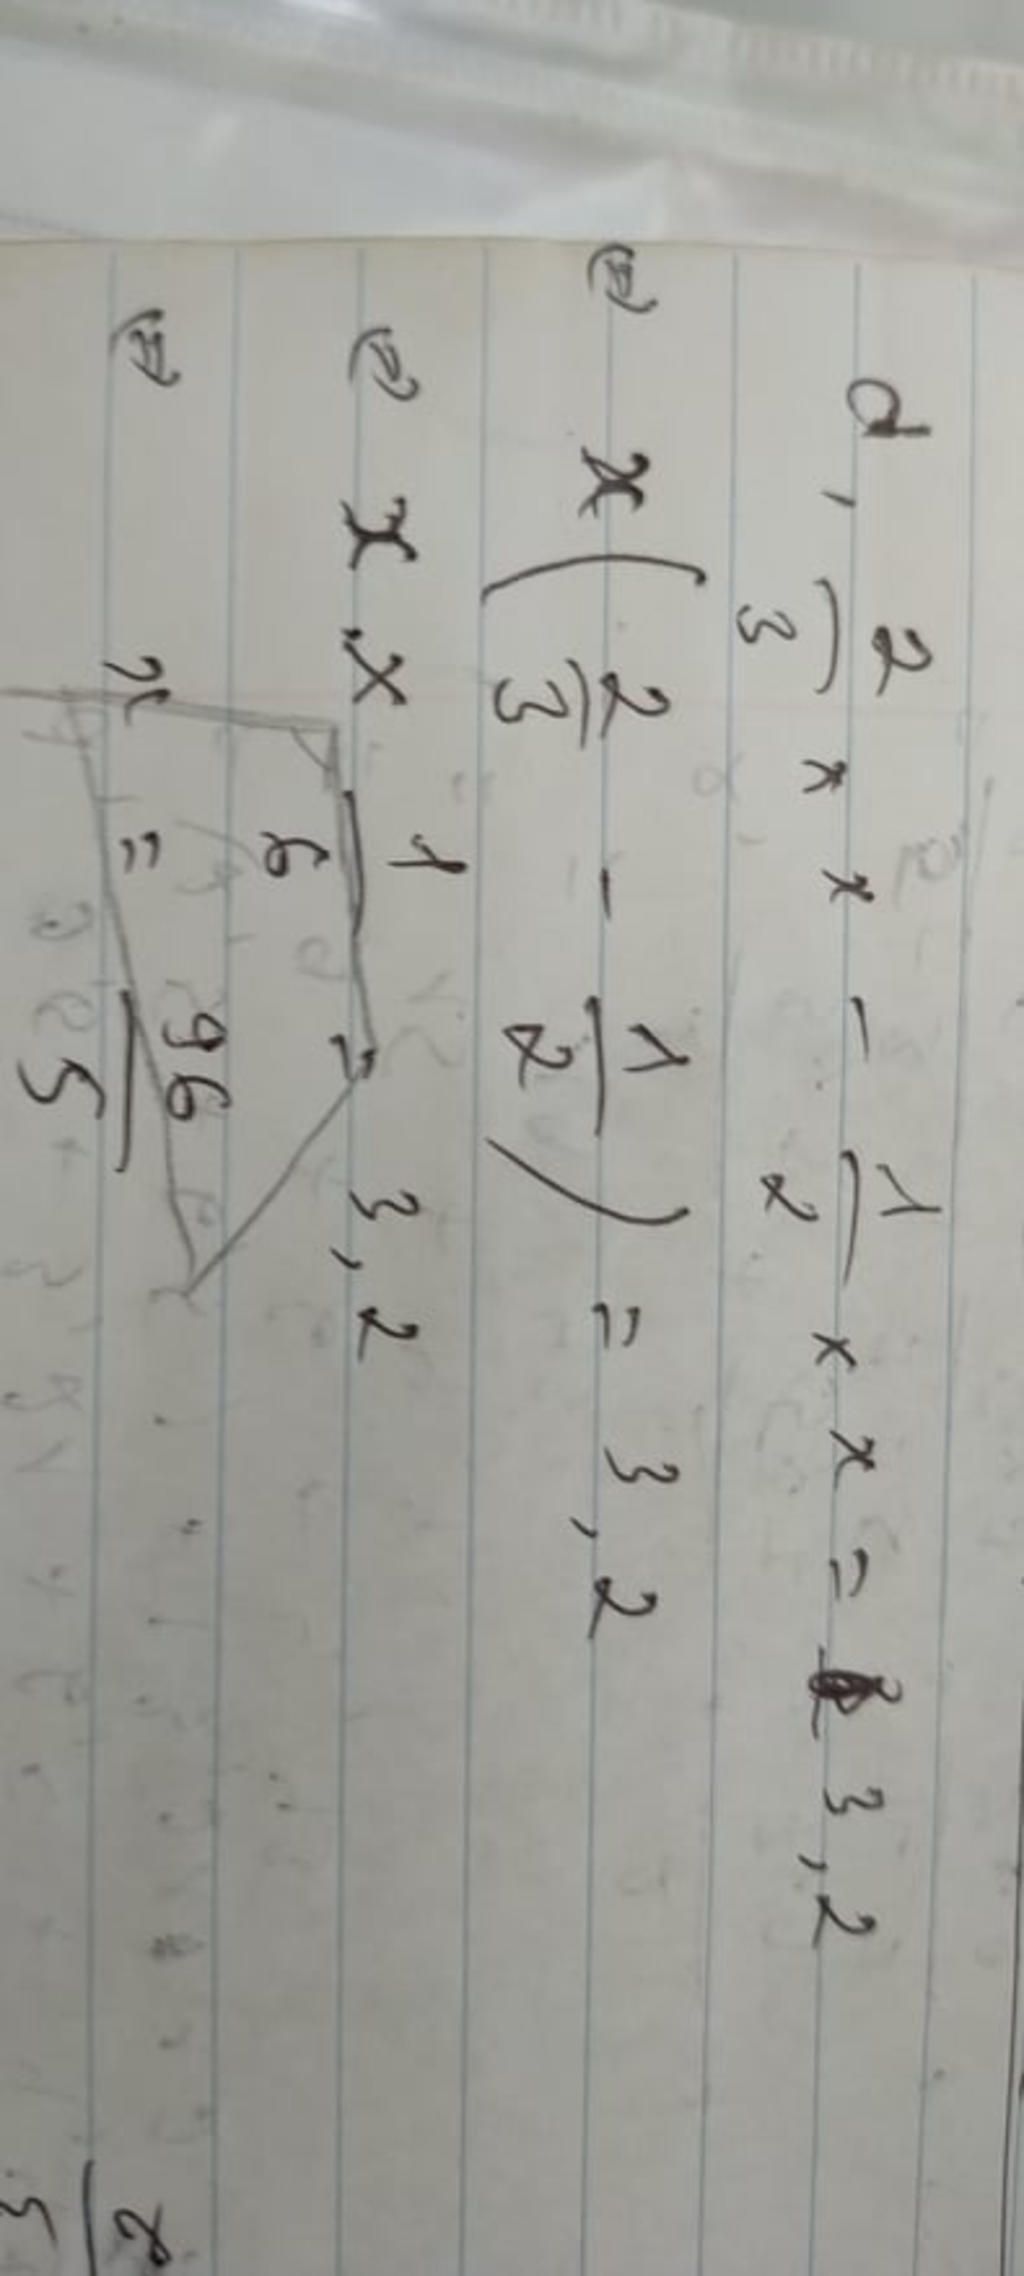 d, 2/3 x x - 1/2 x x = 3,2
(=) x ( 2/3 - 1/2 ) = 3,2
(=) x . x 1/6 = 3,2
(=) x = 96/5
2/5